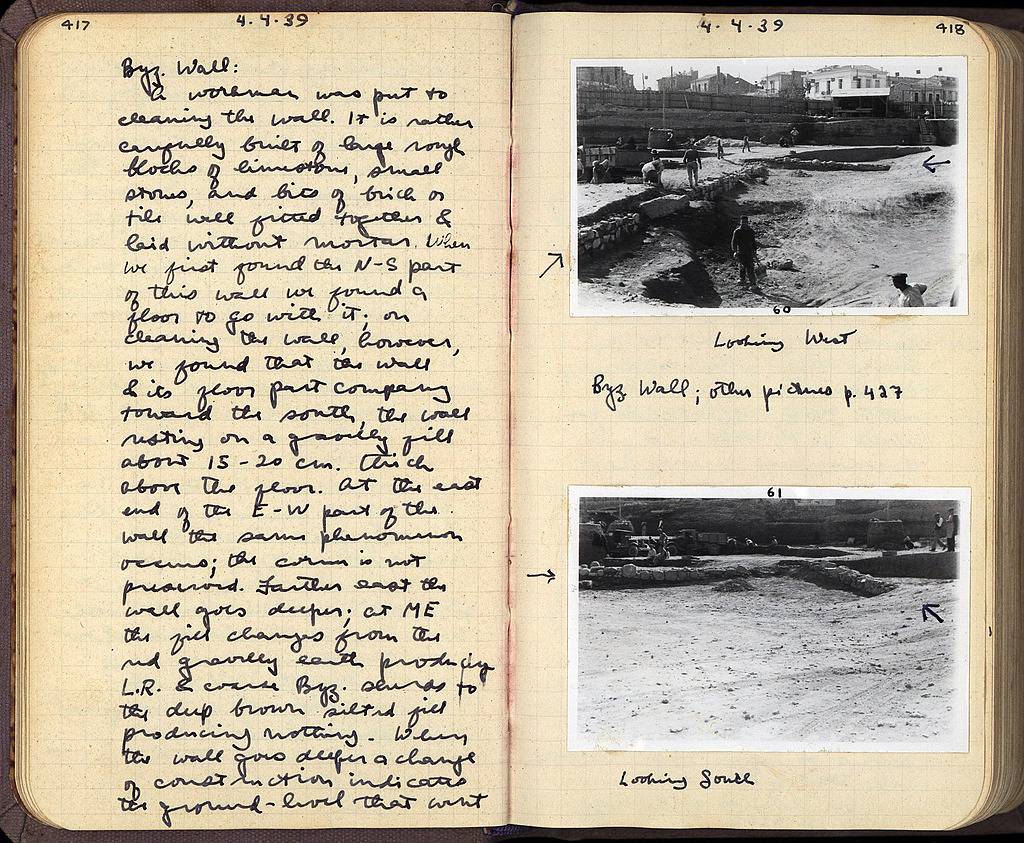 417
4.4.39
Byz. Wall:
A workman was put to
cleaning the wall. It is rather
carefully built of large rough
blocks of limestone, small
stones, and bits of brick or
tile well fitted together &
laid without mortar. When
we first found the N-S part
of this wall we found a
floor to go with it; on
cleaning the wall, however,
we found that the wall
& its floor part company
toward the south, the wall
resting on a gravelly fill
about 15-20 cm. thick
above the floor. At the east
end of the E-W part of the
wall the same phenomenon
occurs; the corner is not
preserved. Farther east the
wall goes deeper; at ME
the fill changes from the
red gravelly earth producing
L.R. & coarse Byz. sherds to
the deep brown silted fill
producing nothing. Where
the wall goes deeper a change
of construction indicates
the ground-level that went
4.4.39
418
60
Looking West
Byz Wall; other pictures p. 427
61
Looking South